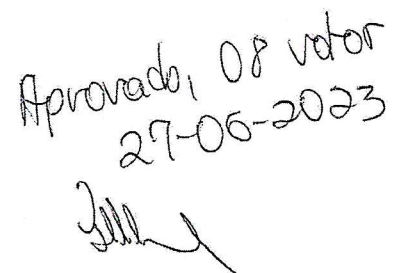 Aprovado, 08 votos
27-06-2023